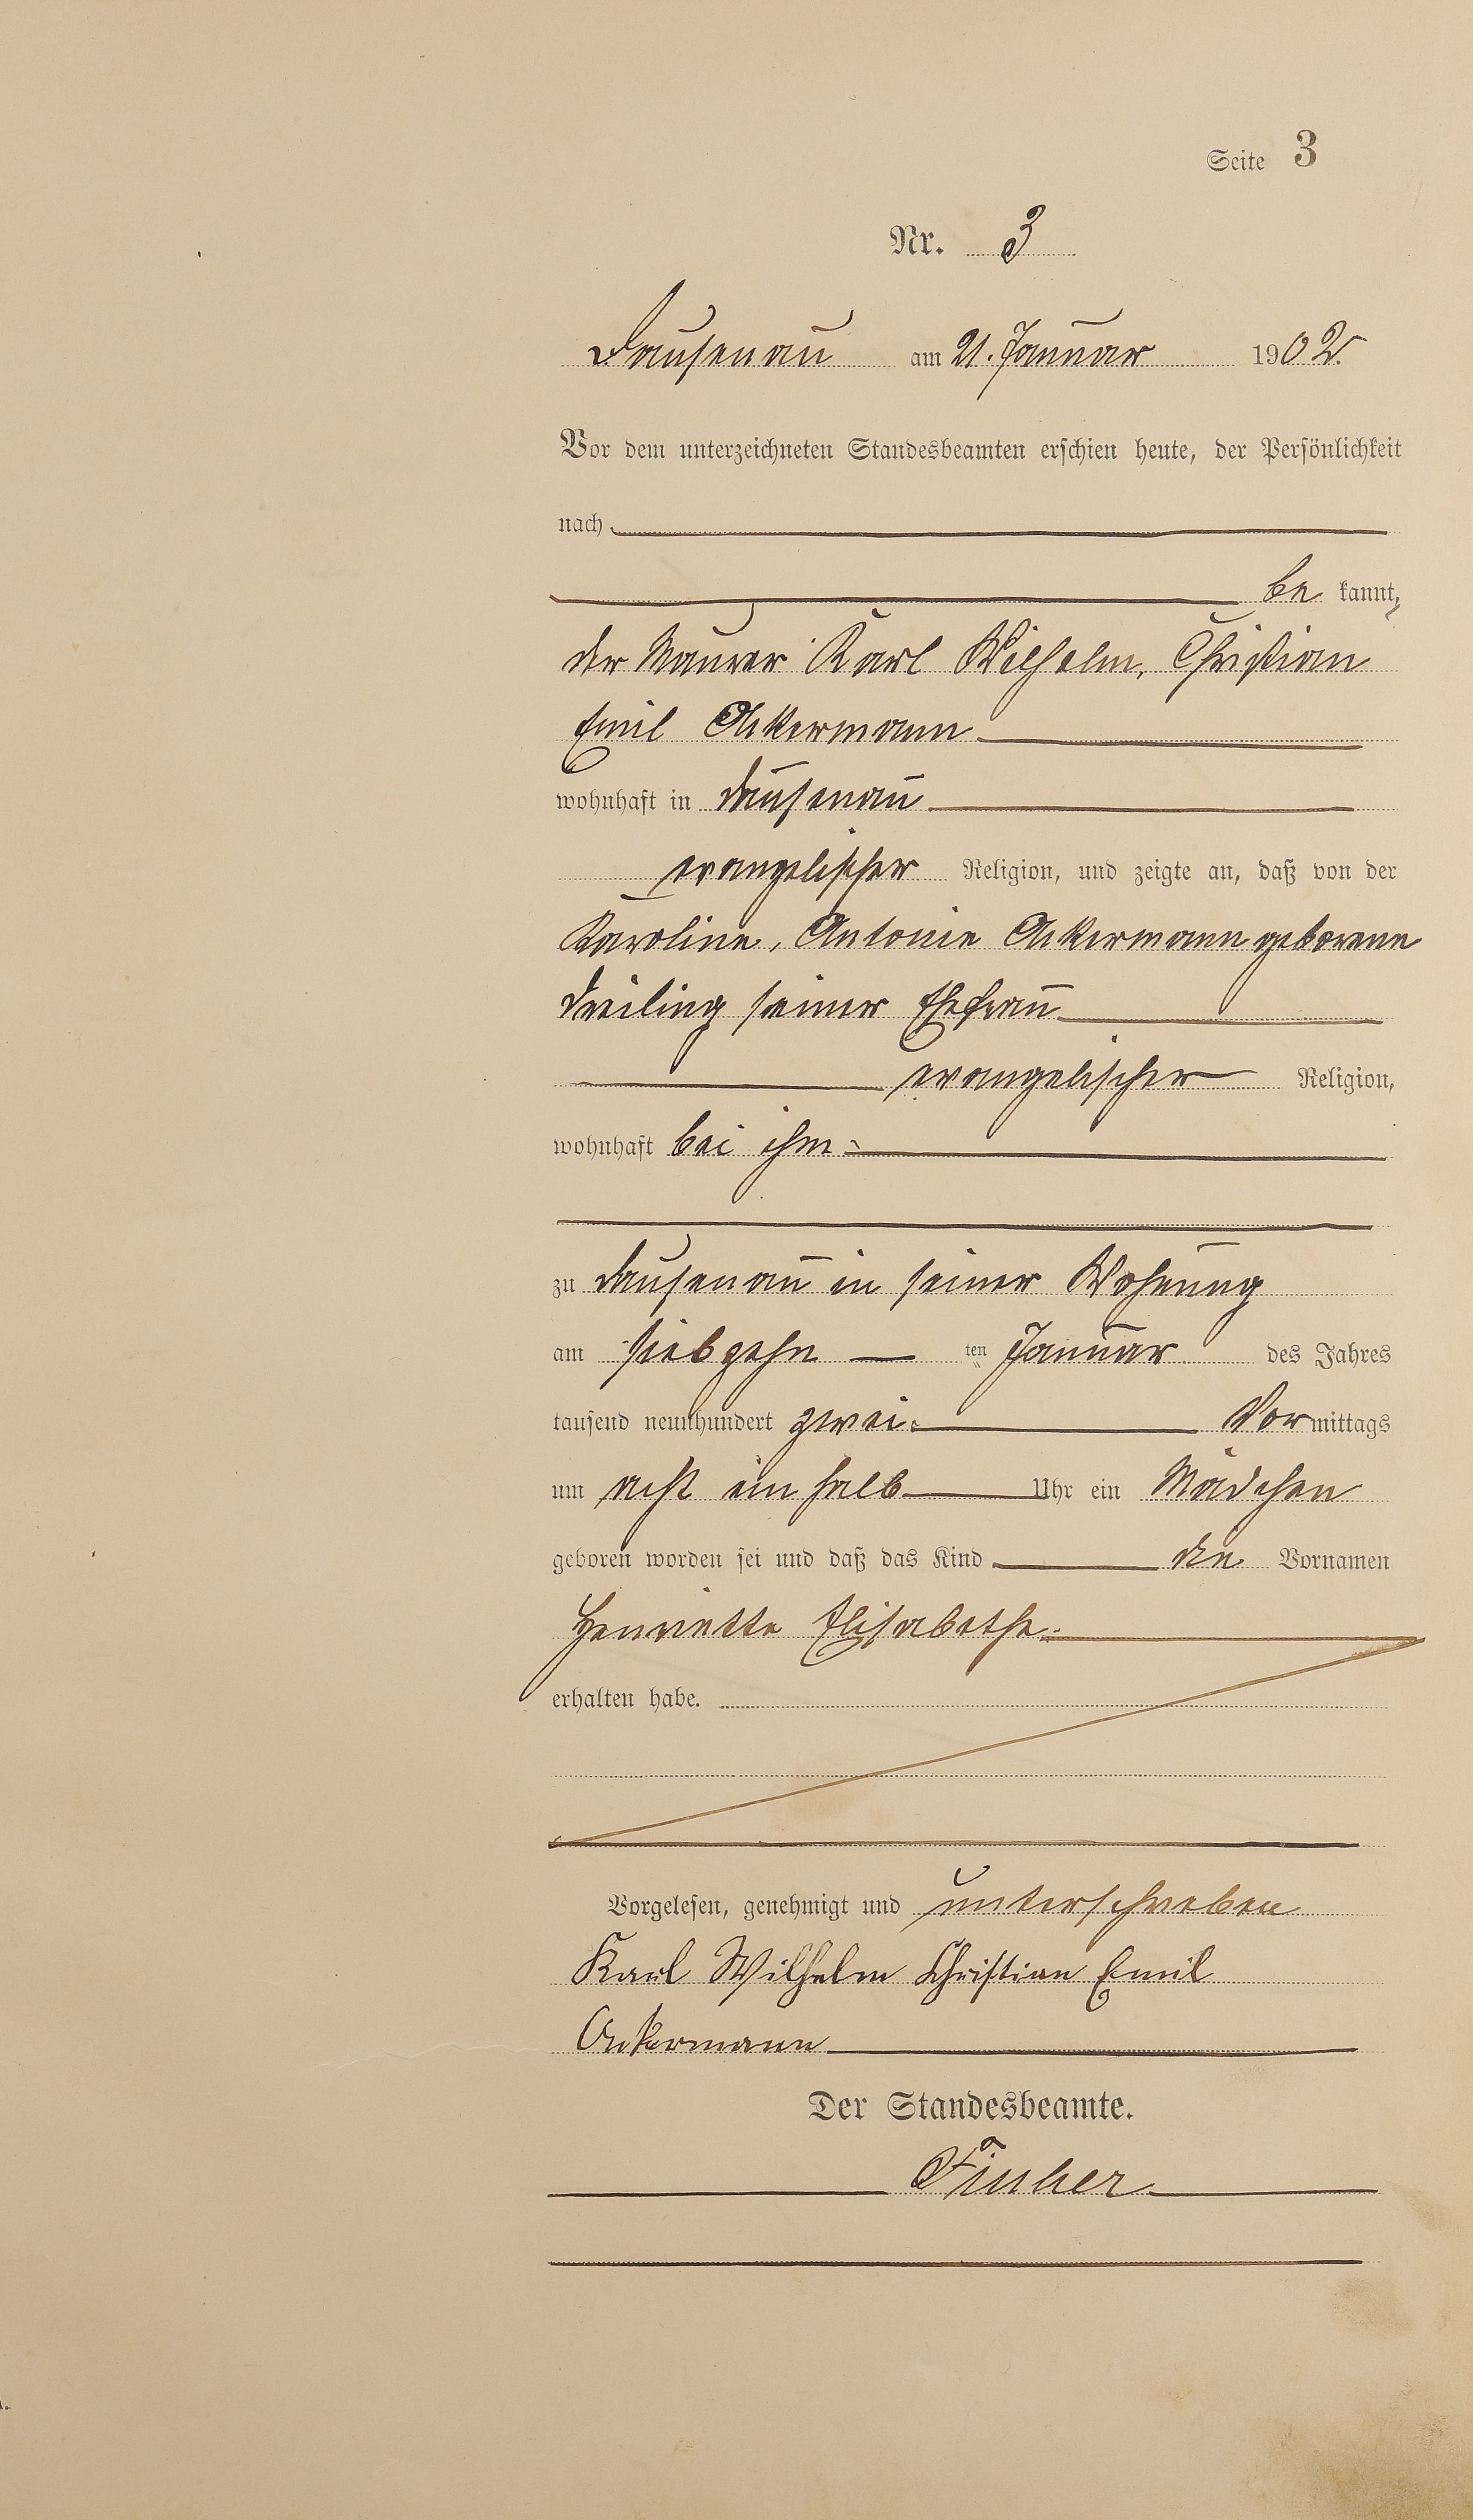 Seite 3
Nr. 3
Dausenau am 21. Januar 1902.
Vor dem unterzeichneten Standesbeamten erschien heute, der Persönlichkeit
nach
be kannt,
der Maurer Karl Wilhelm, Christian
Emil Ackermann
wohnhaft in Dausenau
evangelischer Religion, und zeigte an, daß von der
Karoline, Antonie Ackermann geborene
Dreiling seiner Ehefrau
evangelischer Religion,
wohnhaft bei ihm
zu Dausenau in seiner Wohnung
am siebzehn ten Januar des Jahres
tausend neunhundert zwei Vormittags
um acht ein halb Uhr ein Mädchen
geboren worden sei und daß das Kind die Vornamen
Henriette Elisabethe
erhalten habe.
Vorgelesen, genehmigt und unterschrieben
Karl Wilhelm Christian Emil
Ackermann
Der Standesbeamte.